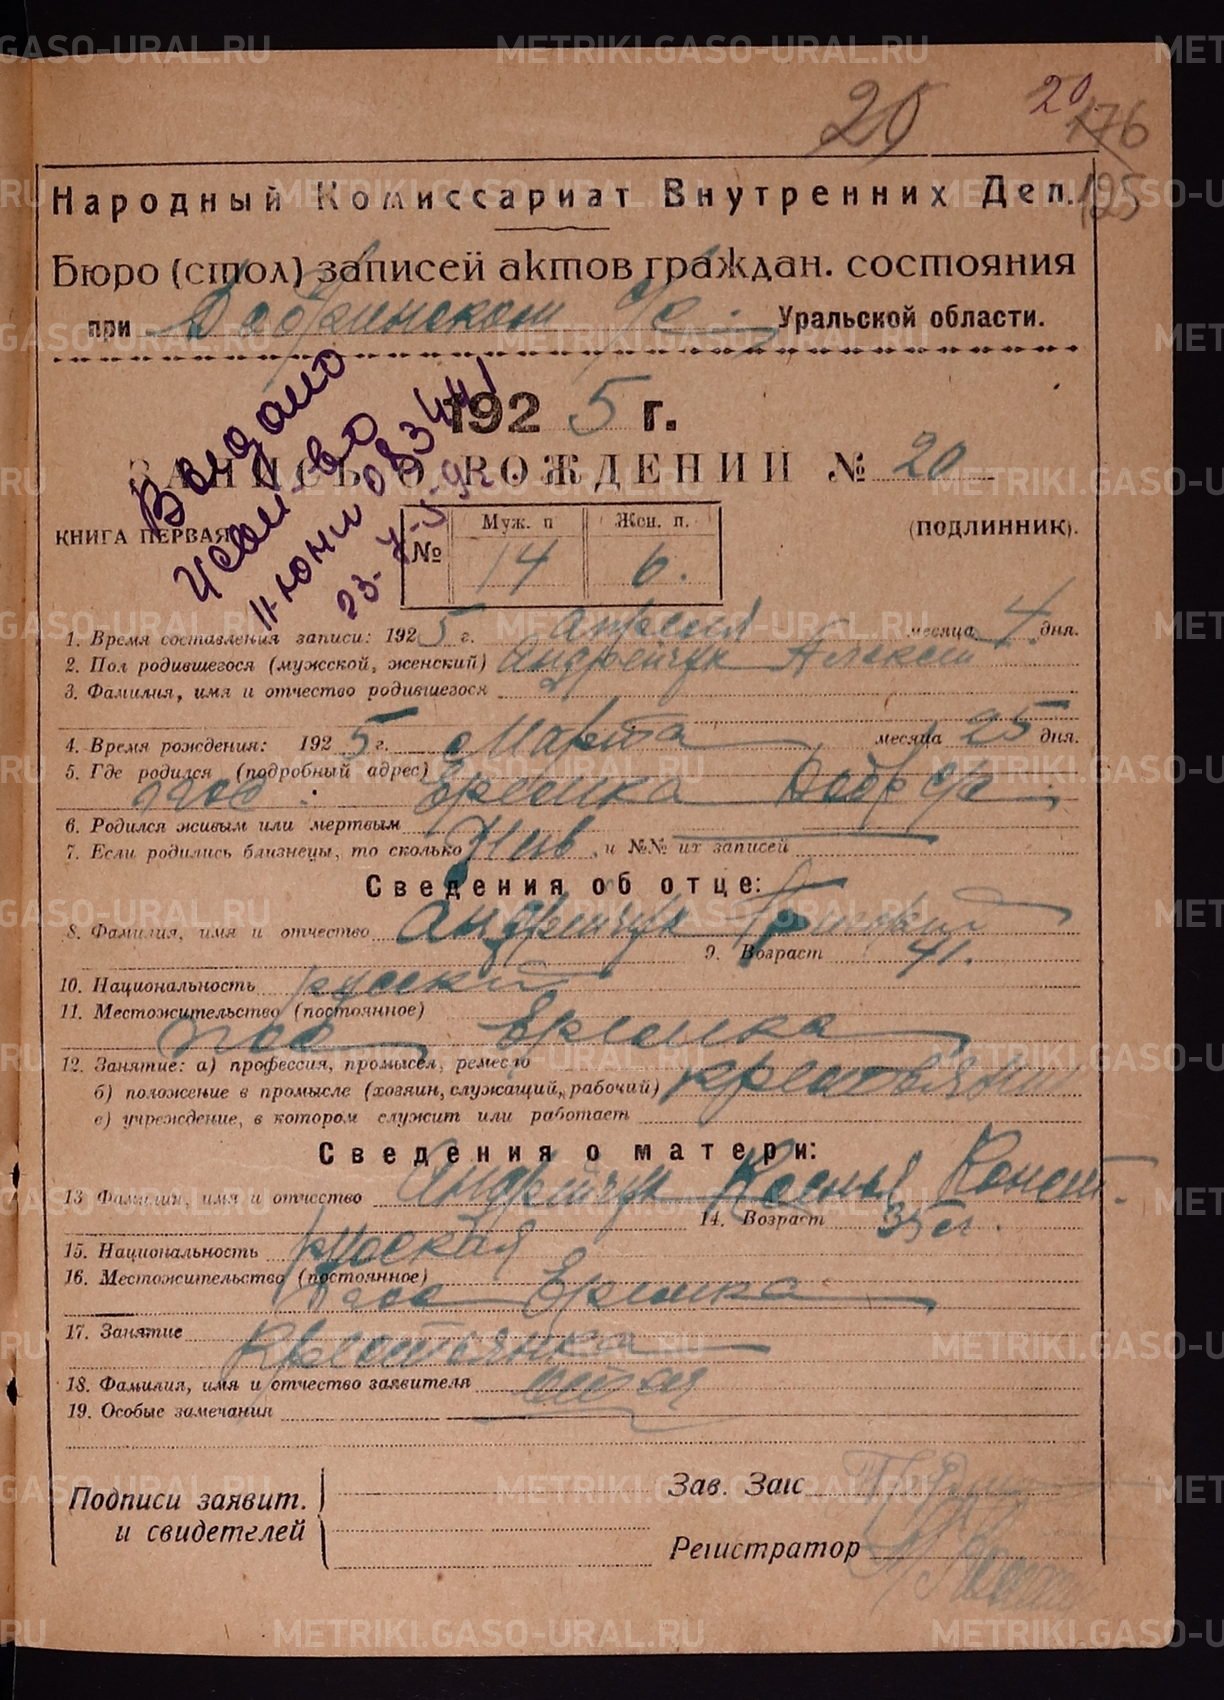 20
20
176
125
Народный Комиссариат Внутренних Дел.
Бюро (стол) записей актов граждан. состояния
при Добринском с/с. Уральской области.
Выдано
1925 г.
ЗАПИСЬ О РОЖДЕНИИ № 20
II-ЮНИ 083441
23-V-
КНИГА ПЕРВАЯ
(ПОДЛИННИК).
№ Муж. п Жен. п.
14 6.
1. Время составления записи: 1925 г. апреля месяца 4 дня.
2. Пол родившегося (мужской, женский) Андрейчук Алексей
3. Фамилия, имя и отчество родившегося
4. Время рождения: 1925 г. Марта месяца 25 дня.
5. Где родился (подробный адрес)
пос. Ерёмка Добр с/с
6. Родился живым или мертвым
7. Если родились близнецы, то сколько Жив, и №№ их записей
Сведения об отце:
8. Фамилия, имя и отчество Андрейчук Григорий
9. Возраст 41.
10. Национальность русский
11. Местожительство (постоянное)
пос Ерёмка
12. Занятие: а) профессия, промысел, ремесло
б) положение в промысле (хозяин, служащий, рабочий) крестьянин
в) учреждение, в котором служит или работает
Сведения о матери:
13 Фамилия, имя и отчество Андрейчук Ксенья Конст.
14. Возраст 35 л.
15. Национальность русская
16. Местожительство (постоянное)
пос Ерёмка
17. Занятие Крестьянка
18. Фамилия, имя и отчество заявителя отец
19. Особые замечания
Подписи заявит.
и свидетелей
Зав. Загс
Регистратор
METRIKI.GASO-URAL.RU